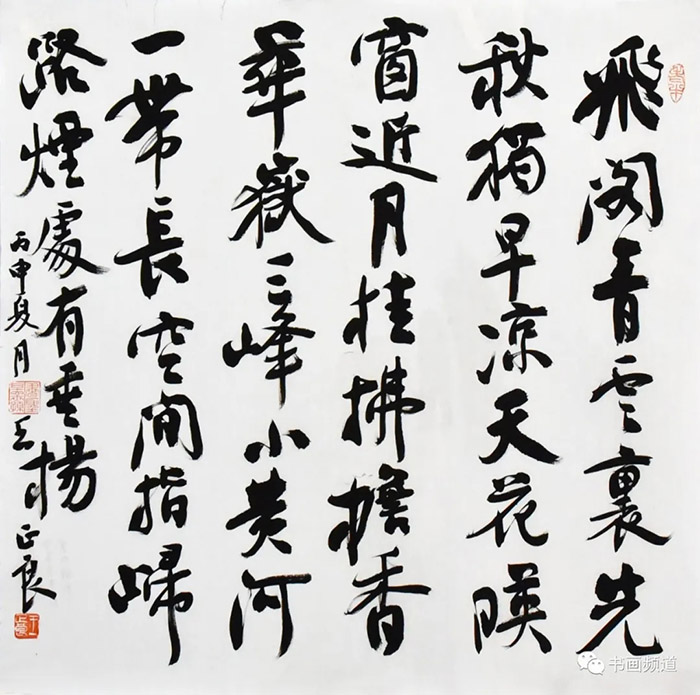 飛閣青雲裏先
秋獨早凉天花暎
窗近月桂拂檐香
華嶽三峰小黄河
一帶長空間指歸
路煙處有垂楊
丙申夏月
正良
书画频道